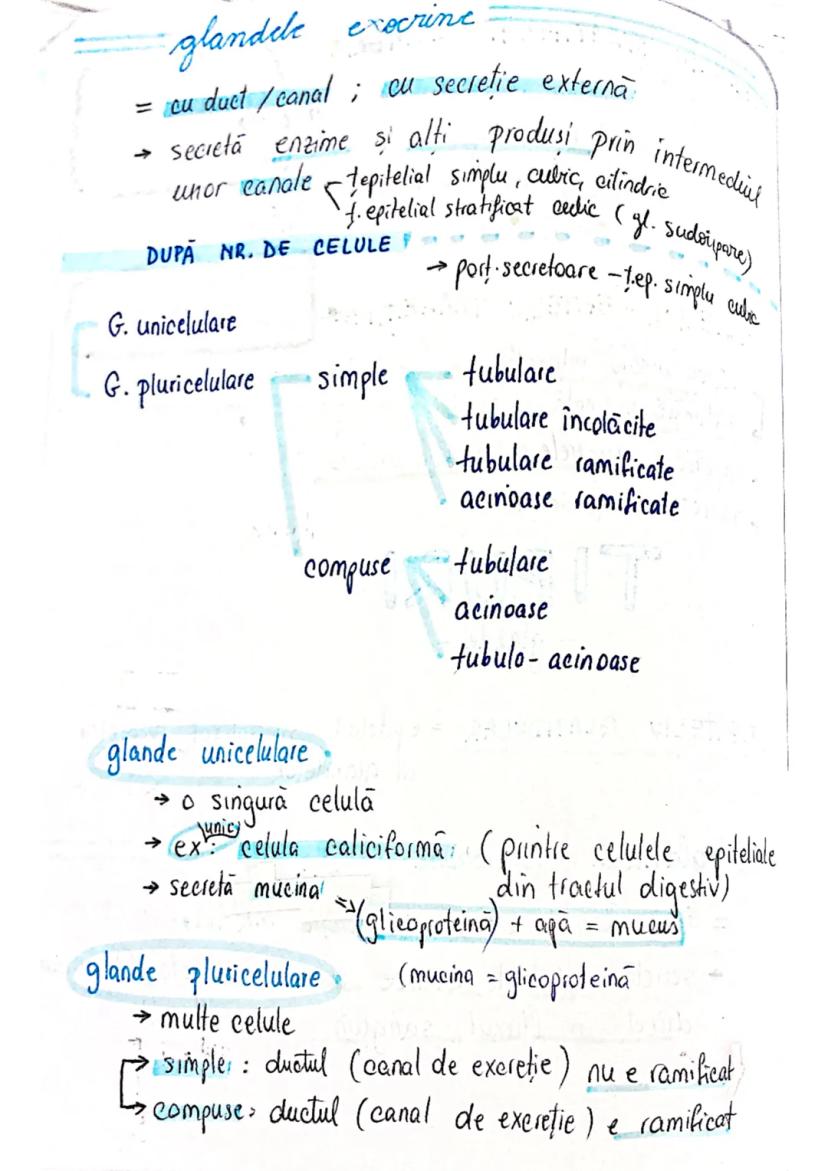 glandele exocrine
= cu duct/canal ; cu secreție externă
→ secretă enzime și alți produși prin intermediul
unor canale
țepitelial simplu, cubic, cilindric
ț. epitelial stratificat cubic (gl. sudoripare)
DUPĂ NR. DE CELULE
→ porț. secretoare – ț.ep. simplu cubic
G. unicelulare
G. pluricelulare
simple
tubulare
tubulare încolăcite
tubulare ramificate
acinoase ramificate
compuse
tubulare
acinoase
tubulo-acinoase
glande unicelulare
→ o singură celulă
unic
→ ex: celula caliciformă: (printre celulele epiteliale
din tractul digestiv)
→ secretă mucina
(glicoproteină) + apă = mucus
glande pluricelulare
(mucina = glicoproteină
→ multe celule
→ simple: ductul (canal de excreție) nu e ramificat
→ compuse: ductul (canal de excreție) e ramificat